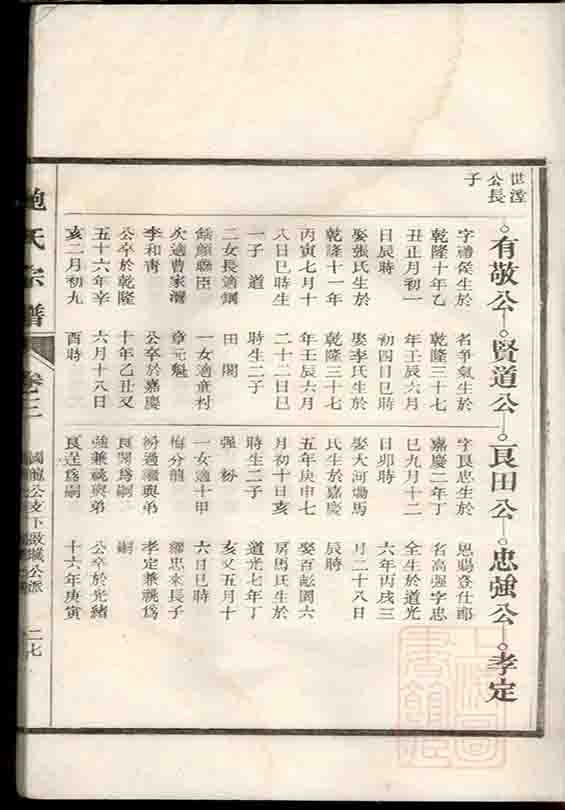 世瀅
公長
子
有敬公 賢道公 良田公 忠強公 孝定
字禮隆生於
乾隆十年乙
丑正月初一
日辰時
娶張氏生於
乾隆十一年
丙寅七月十
八日巳時生
一子 道
二女長適鋼
李和青
公卒於乾隆
五十六年辛
亥二月初九
名爭氣生於
乾隆三十七
年壬辰六月
初四日巳時
娶李氏生於
乾隆三十七
年壬辰六月
二十二日巳
時生二子
田 閣
一女適童村
章元魁
公卒於嘉慶
十年乙丑又
六月十八日
酉時
字良忠生於
嘉慶二年丁
巳九月十二
日卯時
娶大河塲馬
氏生於嘉慶
五年庚申七
月初十日亥
時生二子
強 粉
一女適十甲
梅分龍
粉過繼與弟
良閣爲嗣
強兼祧與弟
良 爲嗣
恩賜登仕郎
名高強字忠
全生於道光
六年丙戌三
月二十八日
辰時
娶百畝園六
房馬氏生於
道光七年丁
亥又五月十
六日巳時
繼忠來長子
孝定兼祧爲
嗣
公卒於光緒
十六年庚寅
鮑氏宗譜
卷三
國龍公支下啟城公派
二七
上海圖
書館藏